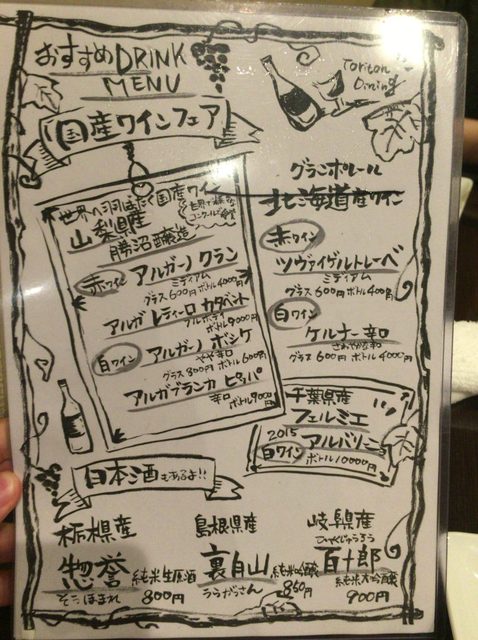 おすすめDRINK
MENU
Toriton
Dining
国産ワインフェア
世界へ羽ばたく国産ワイン
山梨県産
勝沼醸造
赤ワイン アルガーノ クラン
ミディアム
グラス600円 ボトル4000円
アルガ レティーロ カタベント
フルボディ
ボトル9000円
白ワイン アルガーノ ボシケ
やや辛口
グラス800円 ボトル600円
アルガブランカ ピッパ
辛口
ボトル9000円
グランポレール
北海道産ワイン
赤ワイン
ツヴァイゲルトレーベ
ミディアム
グラス600円 ボトル4000円
白ワイン
ケルナー辛口
さわやかな
グラス600円 ボトル4000円
千葉県産
フェルミエ
2015
白ワイン アルバリーニョ
ボトル10000円
日本酒もあるよ!!
栃木県産
惣誉 純米生原酒
そうほまれ 800円
島根県産
裏自山 純米吟醸
うらがっさん 850円
岐阜県産
ひゃくじゅうろう
百十郎
純米大吟醸
900円